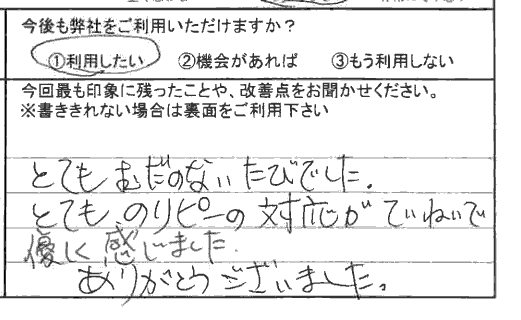 今後も弊社をご利用いただけますか？
①利用したい ②機会があれば ③もう利用しない
今回最も印象に残ったことや、改善点をお聞かせください。
※書ききれない場合は裏面をご利用下さい
とてもむだのないたびでした.
とても、のりピーの対応がていねいで
優しく感じました.
ありがとうございました。